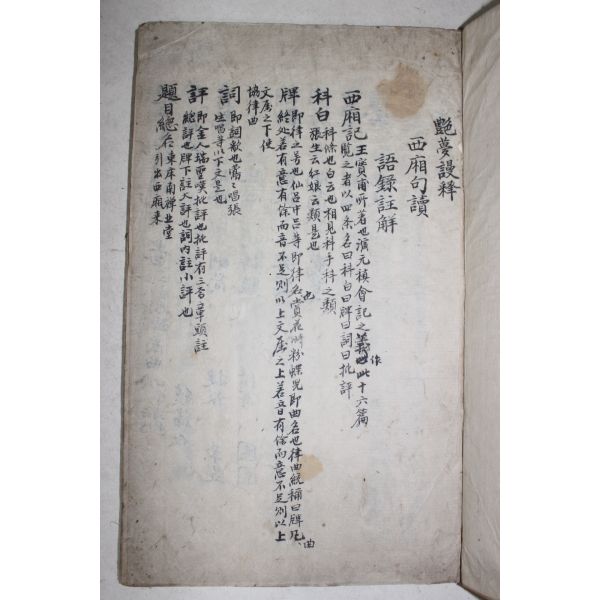 艶夢謾釋
西廂句讀
語錄註解
西廂記王實甫所著也演元稹會記之義作此十六篇
覽之者以四条名曰科白曰牌曰詞曰批評
科白科條也白云也相見科手科之類
張生云紅娘云類是也
牌即律之号也仙呂中呂等即律名也賞花時粉蝶兒即曲名也律曲統稱曰牌凡曲
終处若有意有餘而音不足則以上文屬之上若音有餘而意不足則以上
文屬之下使
協律曲
詞即詞歌也鶯鶯唱張
生唱等以下文是也
評即金人瑞聖嘆批評也批評有三각章頭註
總評也牌下註大評也詞內註小評也
題目總名東床南禪业堂
引出西廂來